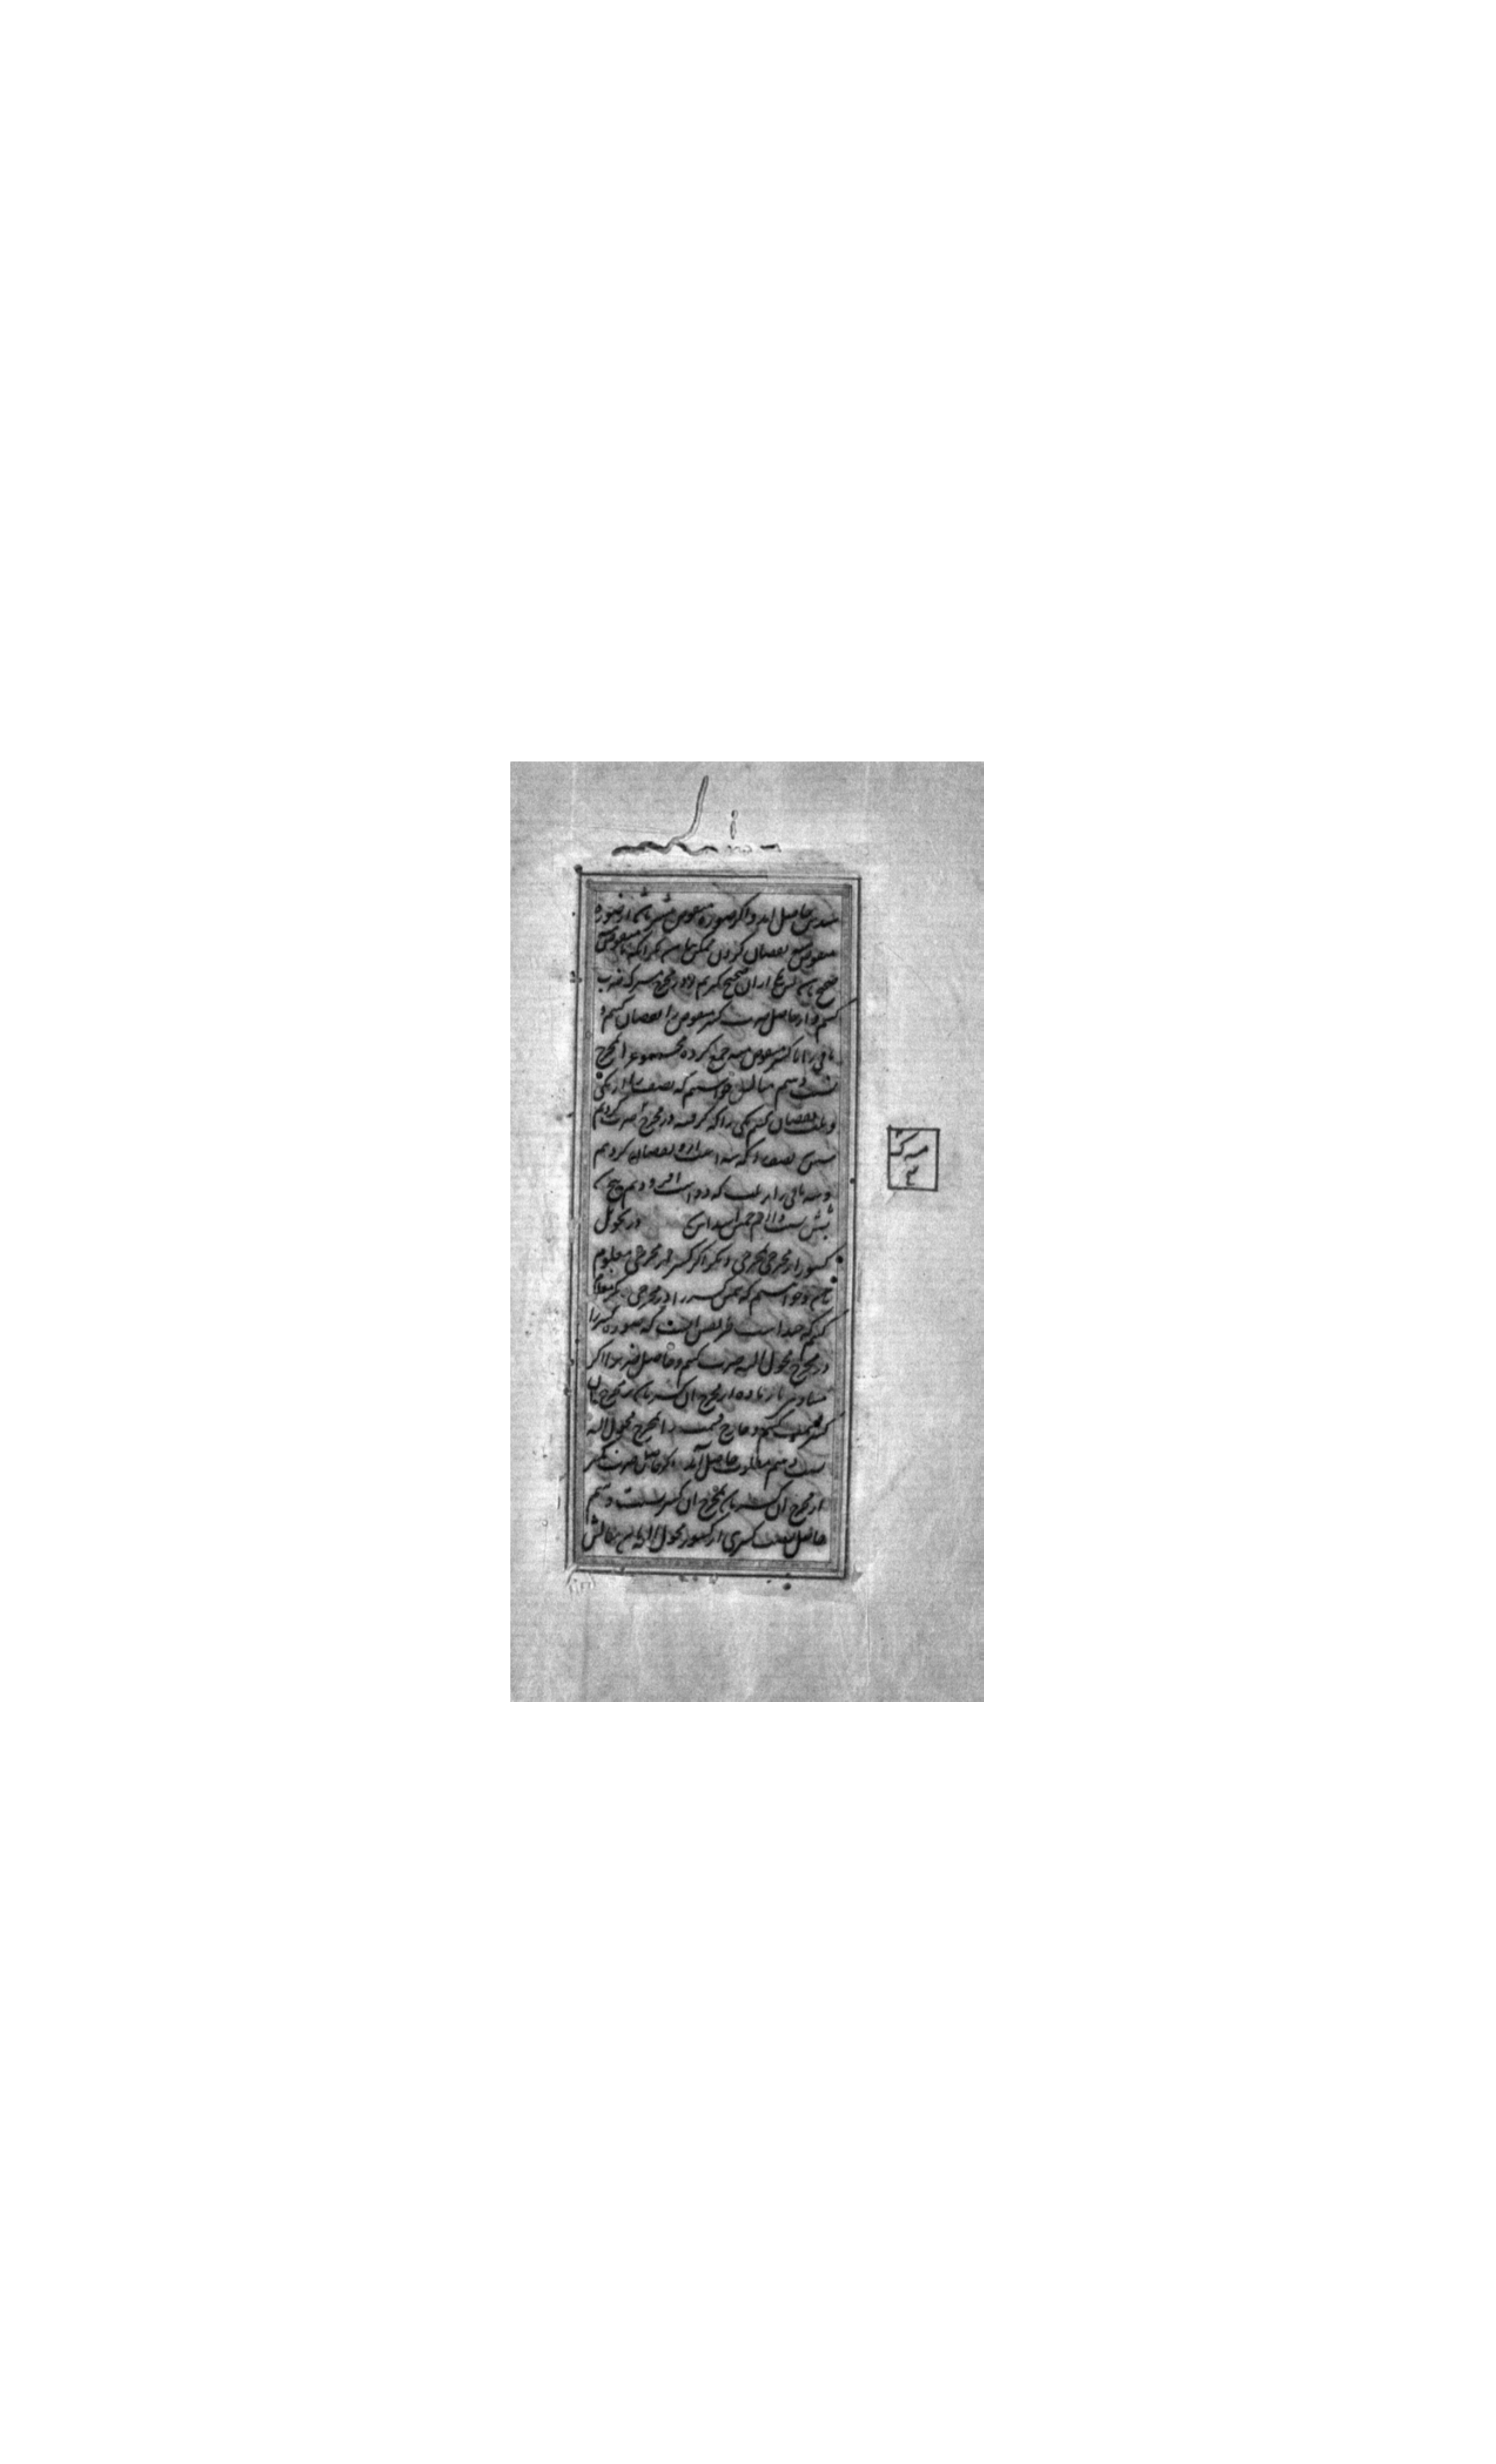 سدس حاصل آمد و اگر صورة منقوص بیشتر باشد از صورة
منقوص منه نقصان کردن ممکن نباشد مگر آنکه با منقوص منه
صحیح باشد یکی از آن صحیح گیریم و در مخرج مشترک ضرب
کنیم و از حاصل ضرب کسر منقوص را نقصان کنیم و
باقی را با کسر منقوص منه جمع کرده مجموع را بمخرج
نسبت دهیم مثالش خواستیم که نصف را از یکی
و ثلث نقصان کنیم یکی را که گرفته در مخرج ضرب کردیم
شش نصف او که سه است ازو نقصان کردیم
و سه باقی را بر ثلث که دو است افزودیم پنج
بشش نسبت دادیم خمسة اسداس در تحویل
کسور از مخرجی بمخرجی دیگر اگر کسر از مخرجی معلوم
باشد و خواستیم که همین کسر را از مخرجی دیگر معلوم
کنیم که چند است طریقش آنست که صورة کسر را
در مخرج محول الیه ضرب کنیم و حاصل ضرب را اگر
مساوی یا زیاده از مخرج آن کسر باشد بر مخرج آن
کسر قسمت کنیم و خارج قسمت را بمخرج محول الیه
نسبت دهیم مطلوب حاصل آید و اگر حاصل ضرب کمتر
از مخرج آن کسر باشد بمخرج آن کسر نسبت دهیم
حاصل نسبت کسری از کسور محول الیه باشد مثالش
مشترک
۳